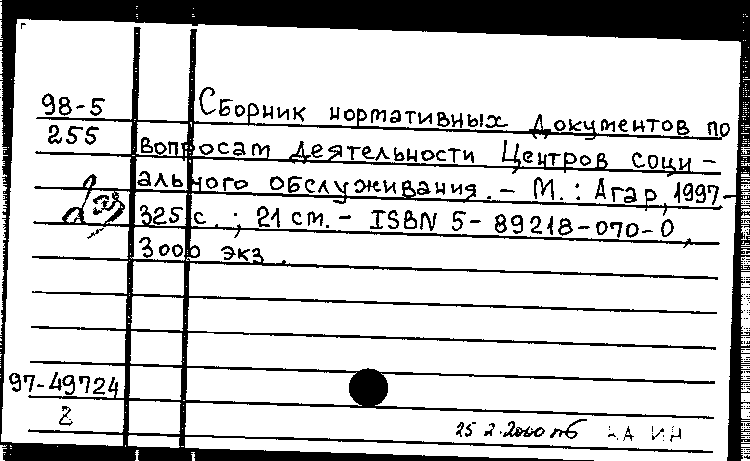 98-5
255
Сборник нормативных документов по
вопросам деятельности Центров соци-
ального обслуживания. - М.: Агар, 1997-
325 с. ; 21 см. - ISBN 5-89218-070-0,
3000 экз.
97-49724
2
25 2.2000